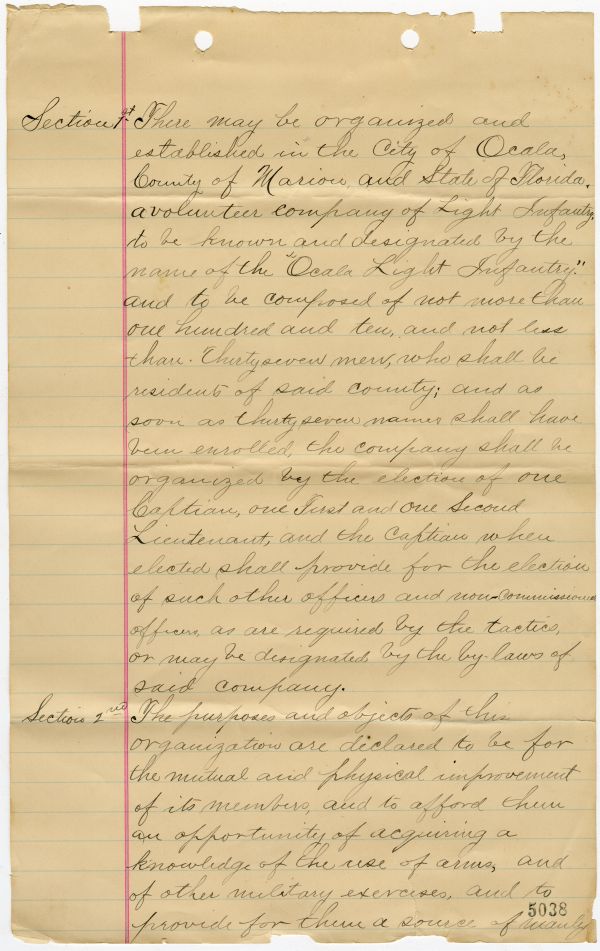 Section 1st There may be organized and
established in the City of Ocala,
County of Marion, and State of Florida,
a volunteer company of Light Infantry,
to be known and designated by the
name of the "Ocala Light Infantry."
and to be composed of not more than
one hundred and ten, and not less
than. Thirtyseven men, who shall be
residents of said county; and as
soon as thirtyseven names shall have
been enrolled, the company shall be
organized by the election of one
Captian, one First and one Second
Lieutenant, and the Captian when
elected shall provide for the election
of such other officers and non-commissioned
officers, as are required by the tactics,
or may be designated by the by-laws of
said company.
Section 2nd The purposes and objects of this
organization are declared to be for
the mutual and physical improvement
of its members, and to afford them
an opportunity of acquiring a
knowledge of the use of arms, and
of other military exercises, and to
provide for them a source of manly
5038